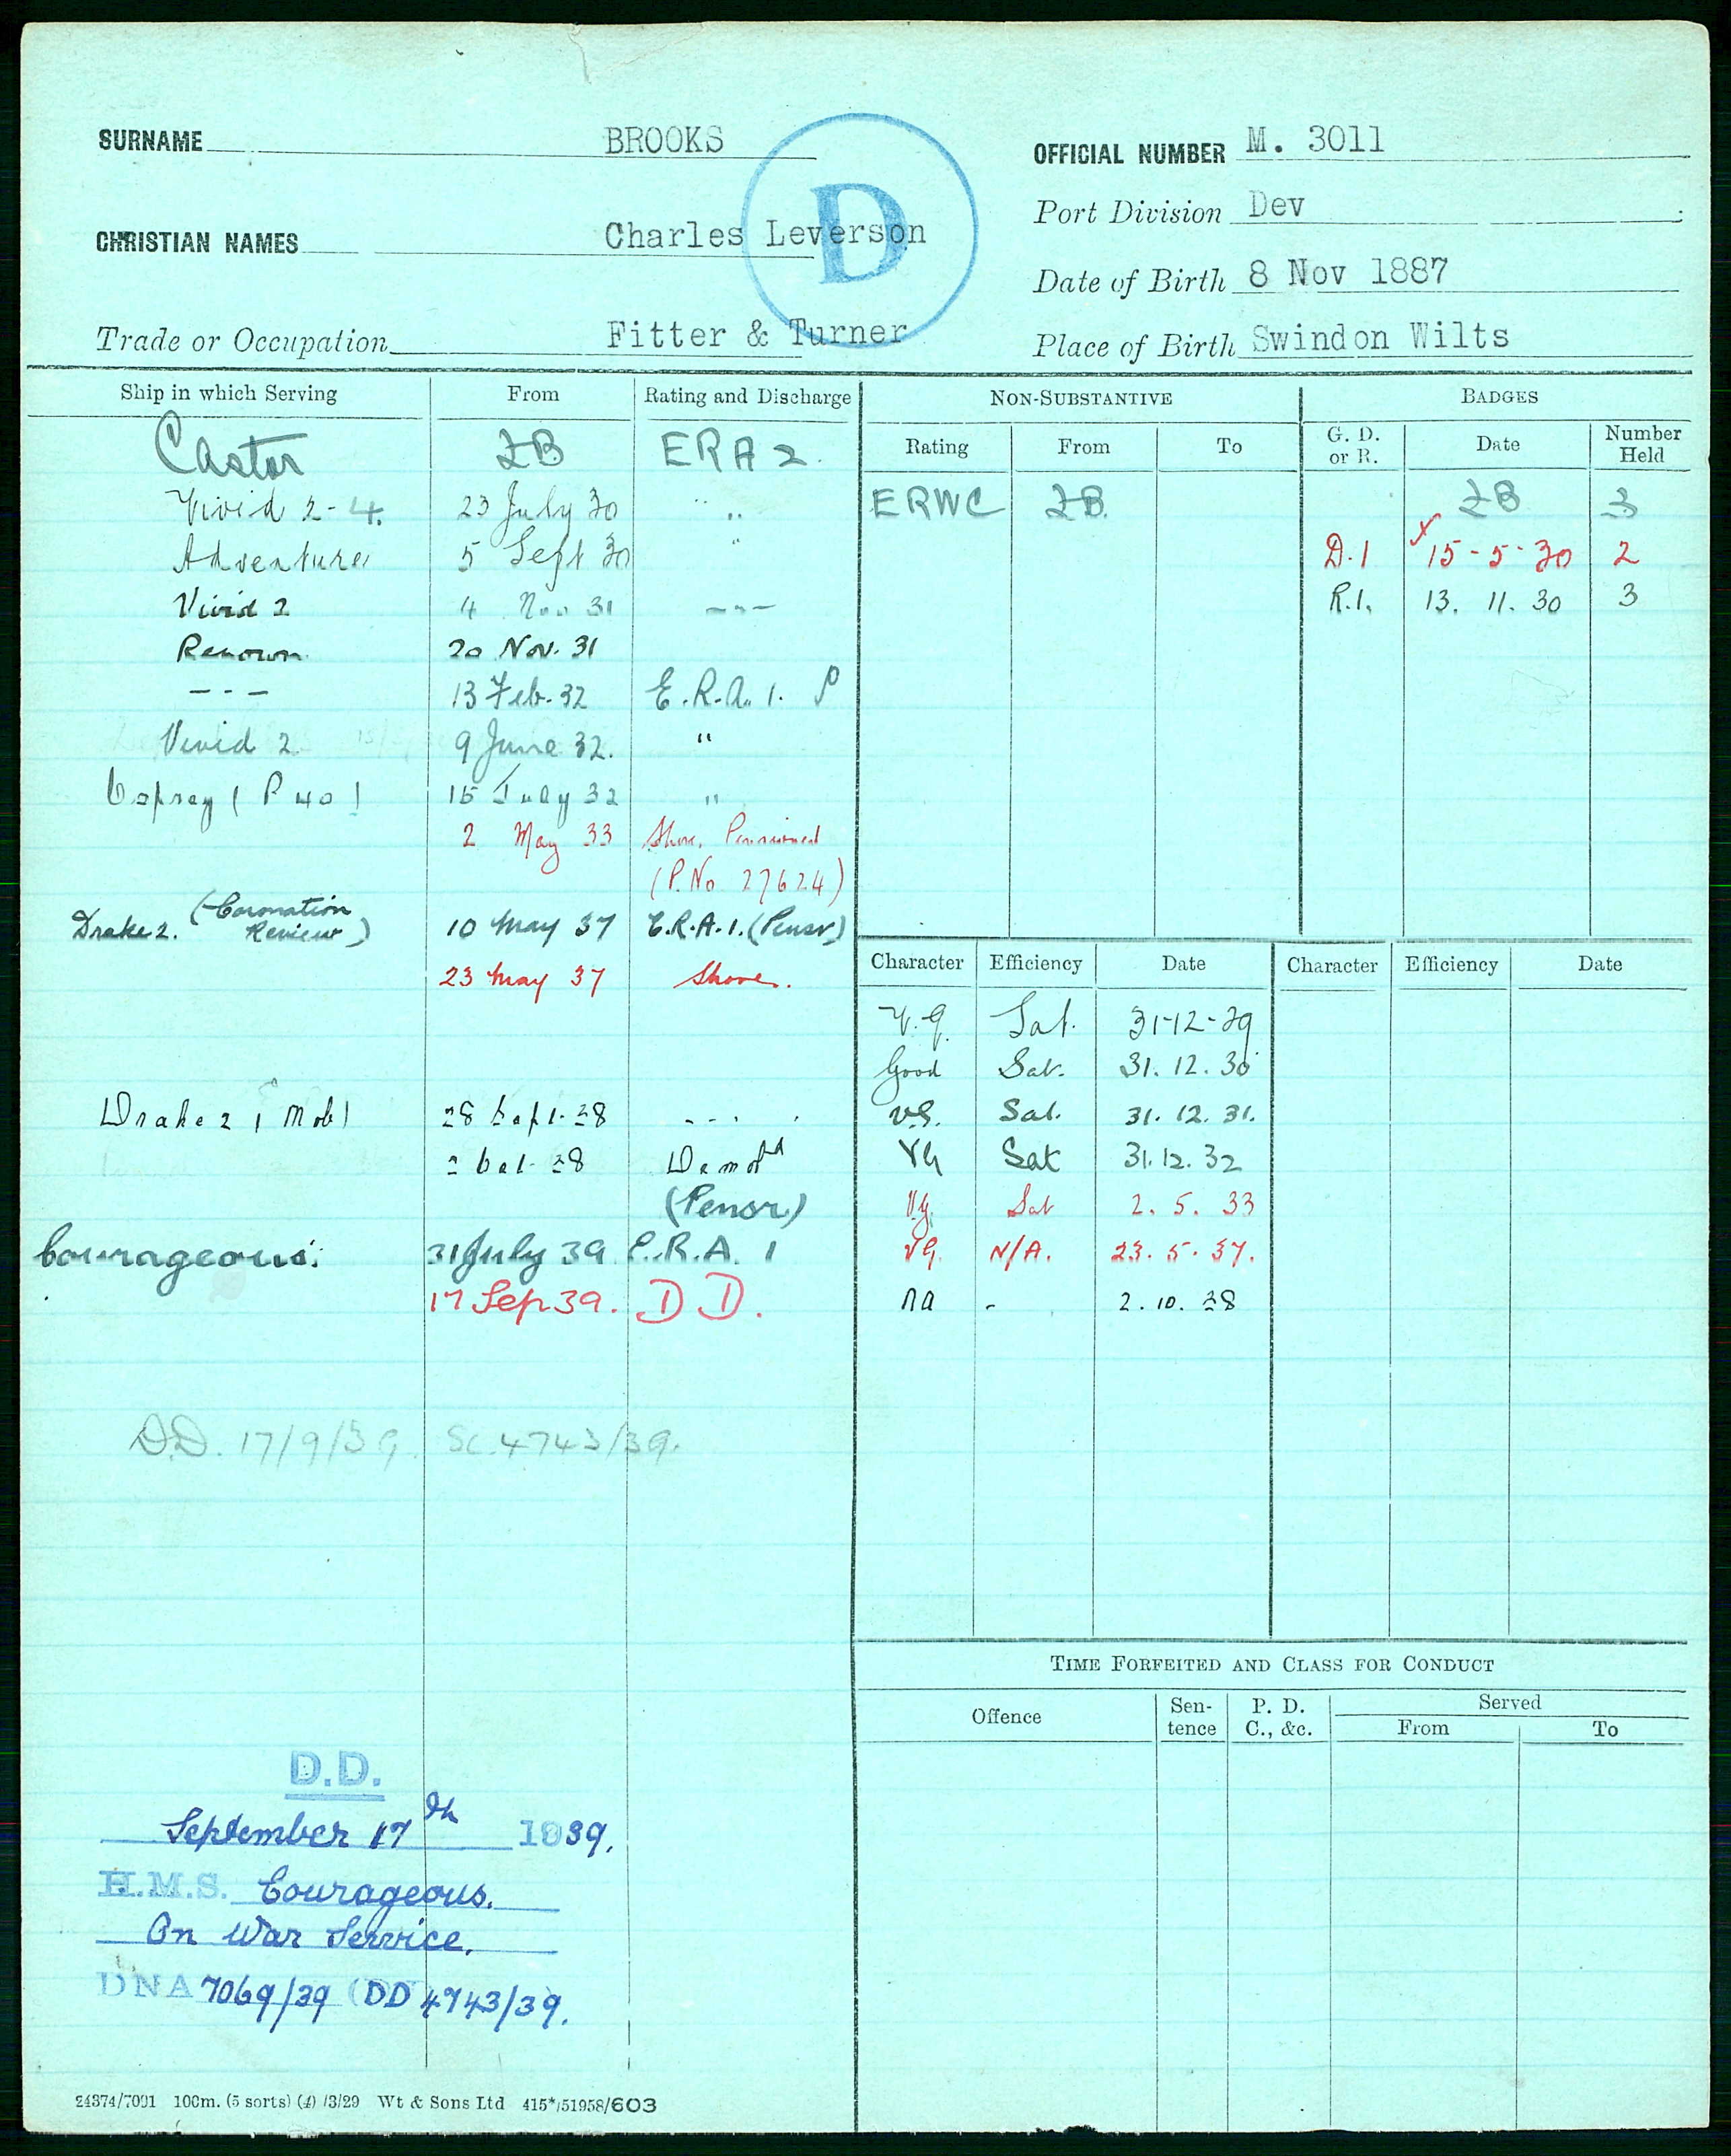 SURNAME BROOKS OFFICIAL NUMBER M. 3011
Port Division Dev
CHRISTIAN NAMES Charles Leverson
D
Date of Birth 8 Nov 1887
Trade or Occupation Fitter & Turner Place of Birth Swindon Wilts
Ship in which Serving From Rating and Discharge
Castor LB ERA 2.
Vivid 2-4. 23 July 30 "
Adventure 5 Sept 30 "
Vivid 2 4 Nov 31 - - -
Renown 20 Nov. 31
- - - 13 Feb. 32 E.R.A. 1. P
Vivid 2 9 June 32. "
Osprey (P 40) 15 July 32 "
2 May 33 Shore. Pensioned
(P.No 27624)
Drake 2. (Coronation Review) 10 May 37 E.R.A.1. (Pensr)
23 May 37 Shore.
Drake 2 (Mob) 28 Sept. 38 - - -
2 Oct. 38 Demobd
(Pensr)
Courageous. 31 July 39 E.R.A. 1
17 Sep 39. D D.
D.D. 17/9/39. SC.4743/39.
D.D.
September 17th 1939.
H.M.S. Courageous.
On War Service.
DNA 7069/39 (DD 4743/39.
NON-SUBSTANTIVE
Rating From To
ERWC LB.
BADGES
G. D. or R. Date Number Held
LB 3
D.1 15-5-30 2
R.1. 13. 11. 30 3
Character Efficiency Date Character Efficiency Date
V.G. Sat. 31-12-29
Good Sat. 31. 12. 30
VG. Sat. 31. 12. 31.
VG Sat 31. 12. 32
VG. Sat 2. 5. 33
VG. N/A. 23. 5. 37.
na - 2. 10. 38
TIME FORFEITED AND CLASS FOR CONDUCT
Offence Sen-tence P. D. C., &c. Served
From To
24374/7091 100m. (5 sorts) (4) /3/29 Wt & Sons Ltd 415*/51958/603